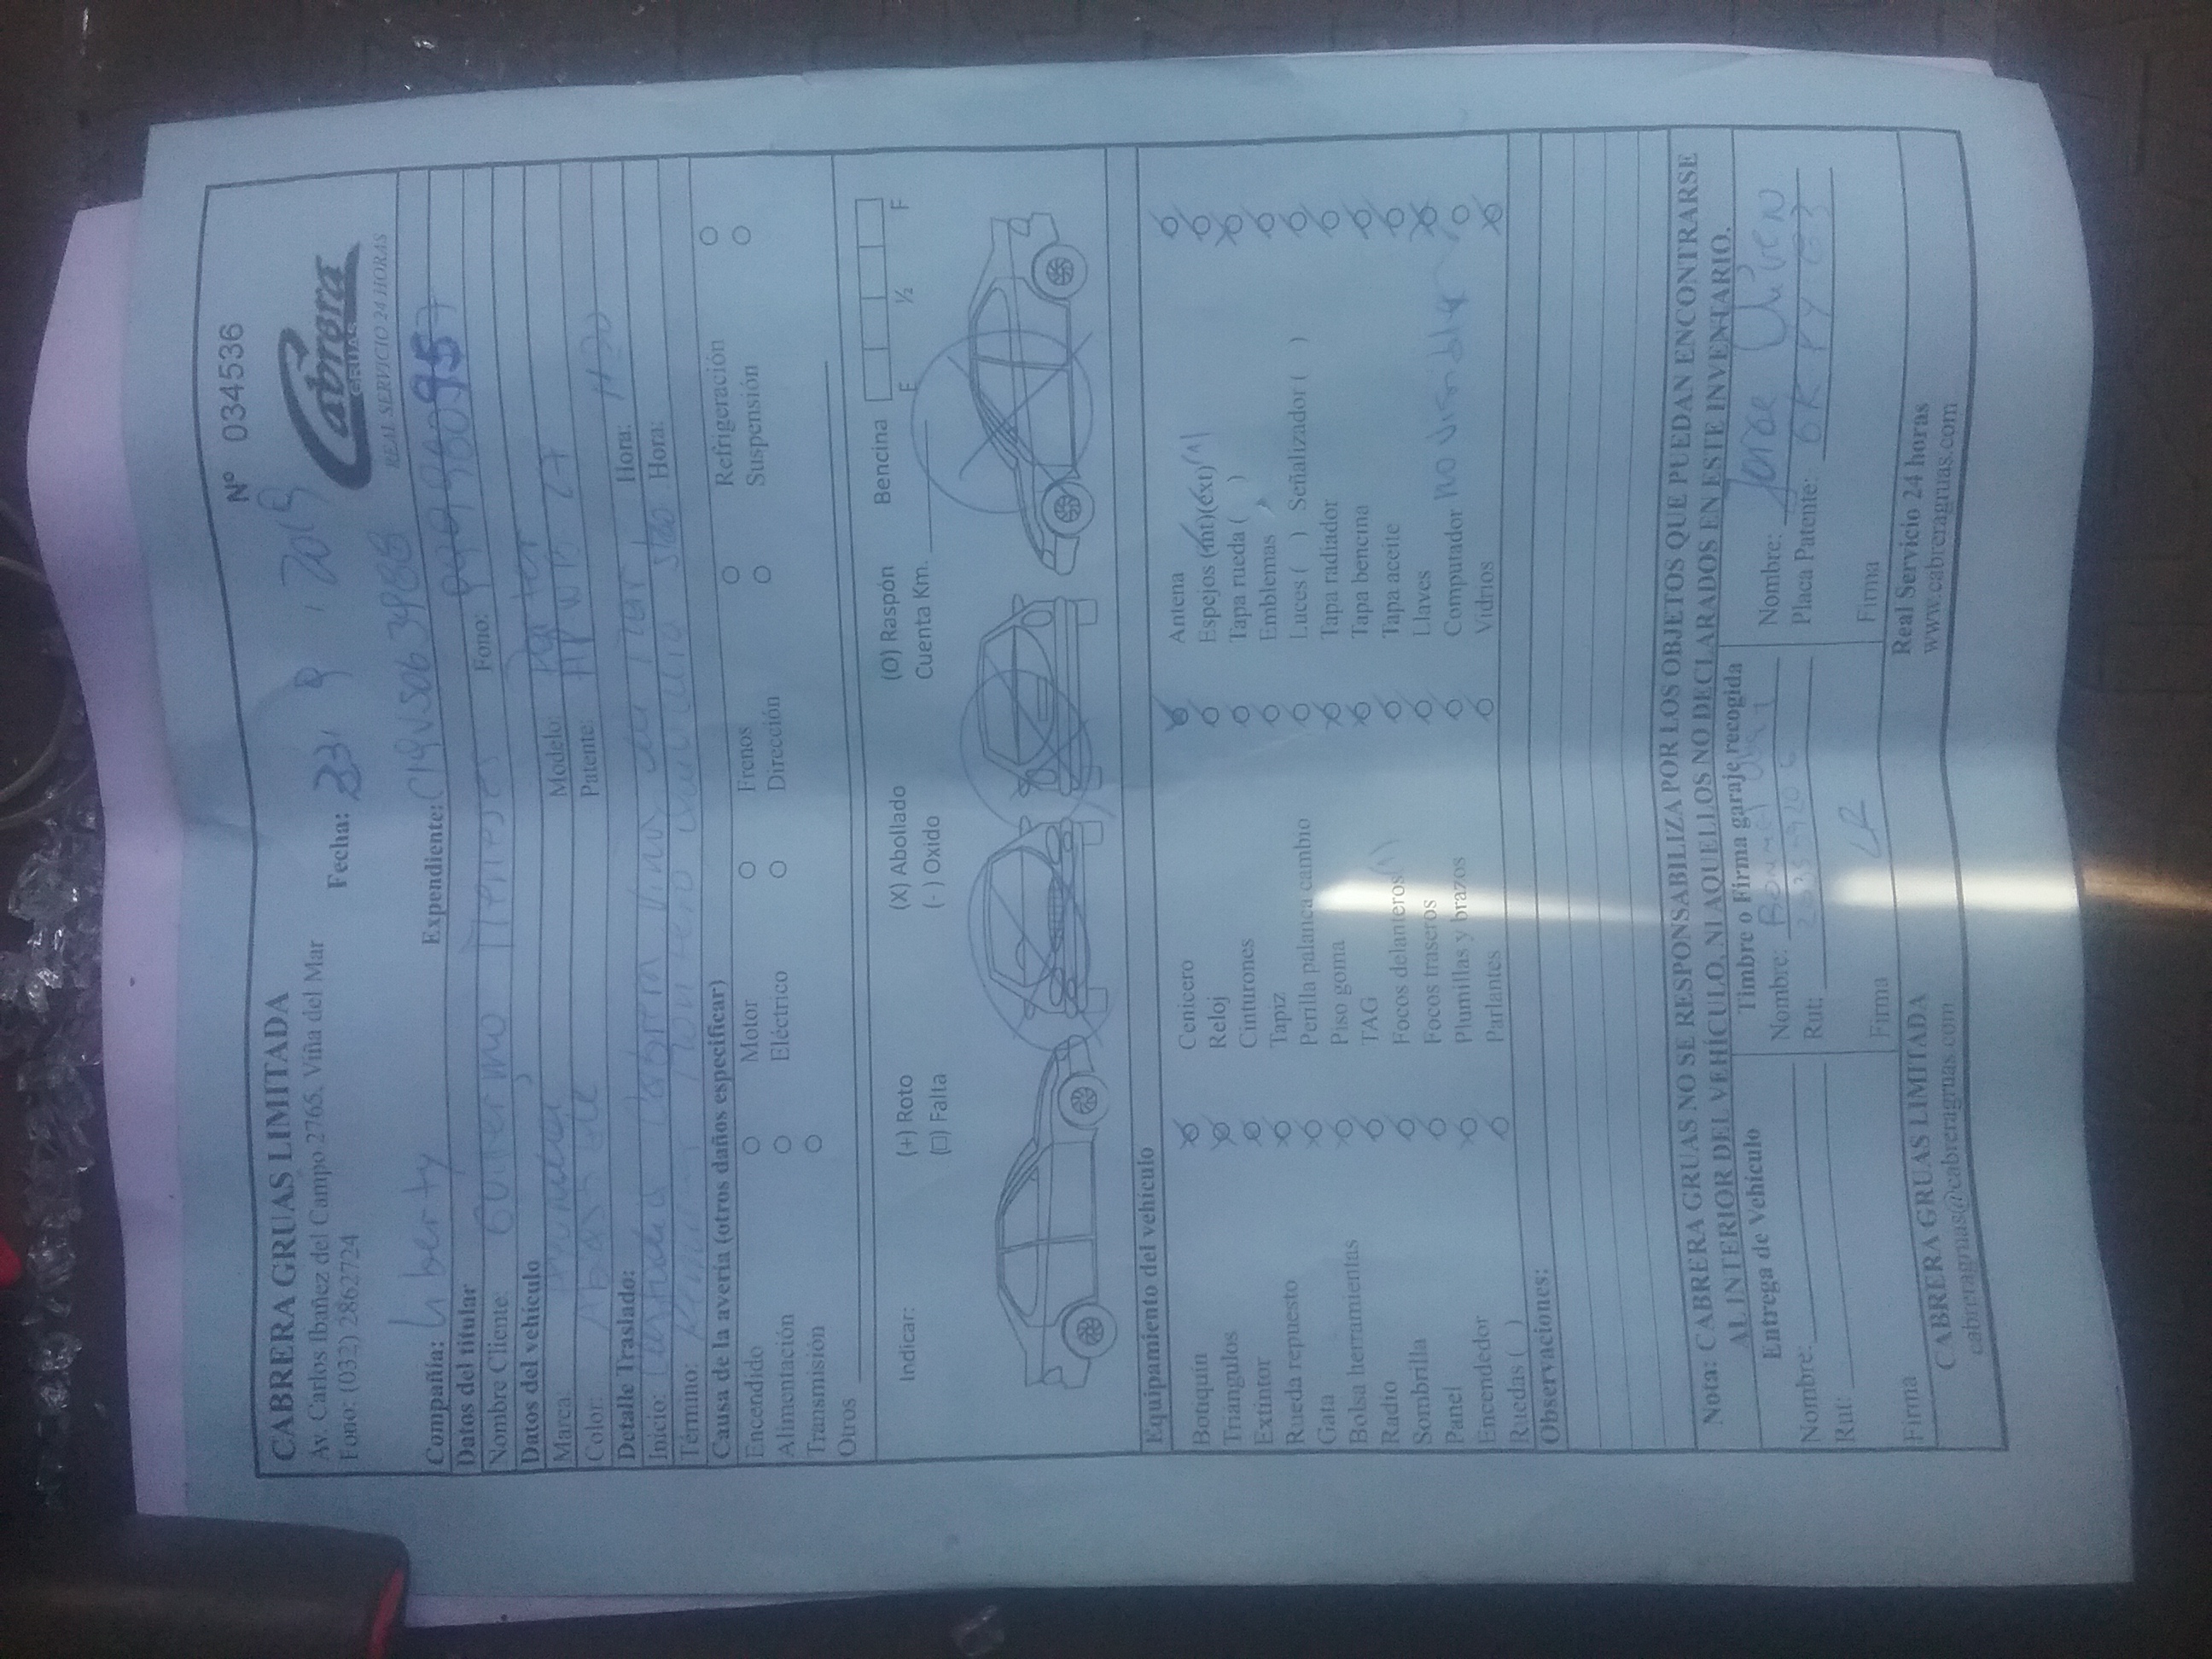 Nº 034536
CABRERA GRUAS LIMITADA
Av. Carlos Ibañez del Campo 2765, Viña del Mar
Fono: (032) 2862724
Fecha: 23 9 2019
Cabrera
GRUAS
REAL SERVICIO 24 HORAS
Compañía: Liberty Expendiente:
Datos del titular
Nombre Cliente: Guillermo Fono:
Datos del vehículo
Marca: Hyundai Modelo: Porter
Color: Patente:
Detalle Traslado:
Inicio: Cabrera Viña del Mar Hora: 11:30
Término: Hora:
Causa de la avería (otros daños especificar)
Encendido Motor Frenos Refrigeración
Alimentación Eléctrico Dirección Suspensión
Transmisión
Otros
Indicar: (+) Roto (X) Abollado (O) Raspón Bencina
(□) Falta (-) Oxido Cuenta Km. E ½ F
Equipamiento del vehículo
Botiquín Cenicero Antena
Triangulos Reloj Espejos (int)(ext) (1)
Extintor Cinturones Tapa rueda ( )
Rueda repuesto Tapiz Emblemas
Gata Perilla palanca cambio Luces ( ) Señalizador ( )
Bolsa herramientas Piso goma Tapa radiador
Radio TAG Tapa bencina
Sombrilla Focos delanteros (1) Tapa aceite
Panel Focos traseros Llaves
Encendedor Plumillas y brazos Computador no visible
Ruedas ( ) Parlantes Vidrios
Observaciones:
Nota: CABRERA GRUAS NO SE RESPONSABILIZA POR LOS OBJETOS QUE PUEDAN ENCONTRARSE
AL INTERIOR DEL VEHÍCULO, NI AQUELLOS NO DECLARADOS EN ESTE INVENTARIO.
Entrega de Vehículo Timbre o Firma garaje recogida
Nombre: Nombre: Nombre: Jorge
Rut: Rut: Placa Patente:
Firma Firma Firma
CABRERA GRUAS LIMITADA CABRERA GRUAS LIMITADA Real Servicio 24 horas
cabreragruas@cabreragruas.com www.cabreragruas.com